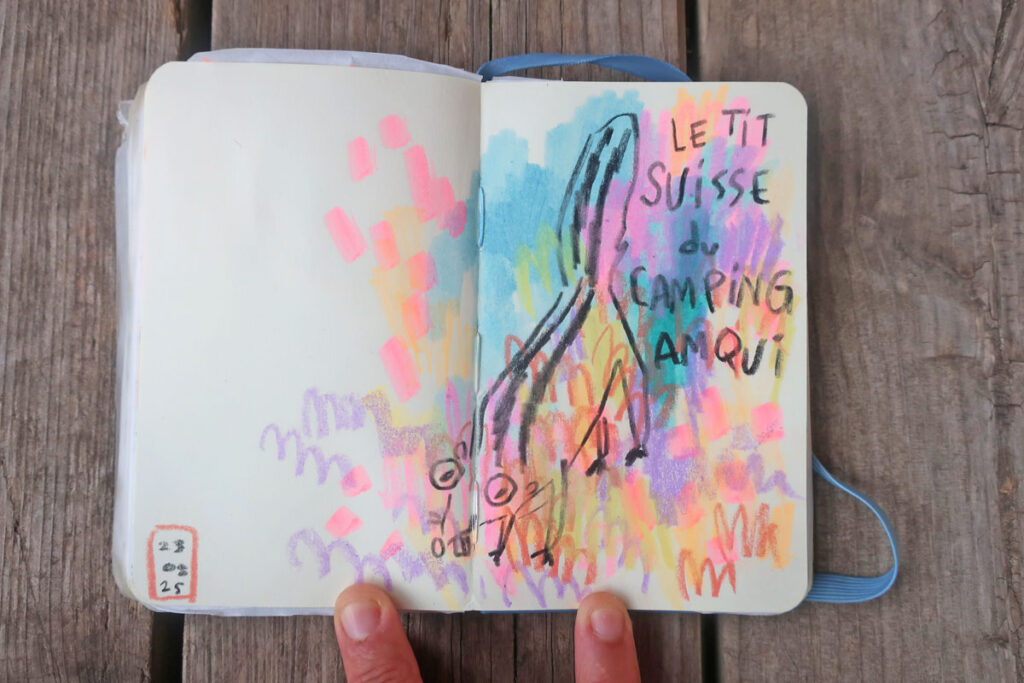 23
08
25
LE TiT
SUiSSE
du
CAMPiNG
AMQUi